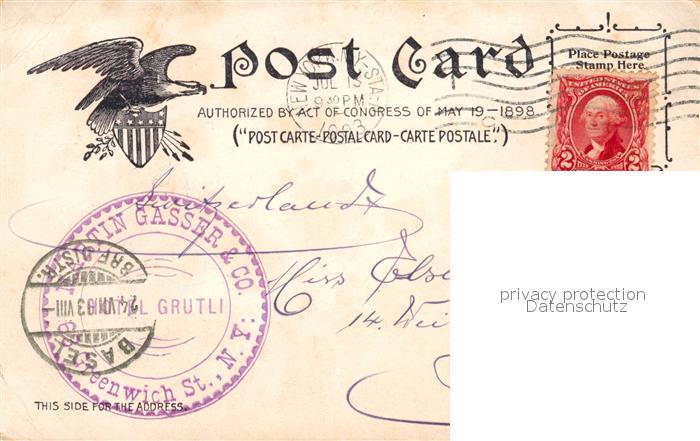 Post Card
Place Postage
Stamp Here.
NEW YORK, N.Y.-STA.
JUL 13
9 30 PM
1903
AUTHORIZED BY ACT OF CONGRESS OF MAY 19-1898
("POST CARTE-POSTAL CARD-CARTE POSTALE".)
UNITED STATES
OF AMERICA
2 2
Switzerland
TIN GASSER & CO.
L GRUTLI
Greenwich St., N.Y.
BRF. DISTR.
24.VII.03.VIII
BASEL
Miss Else
14. Wei
privacy protection
Datenschutz
THIS SIDE FOR THE ADDRESS.